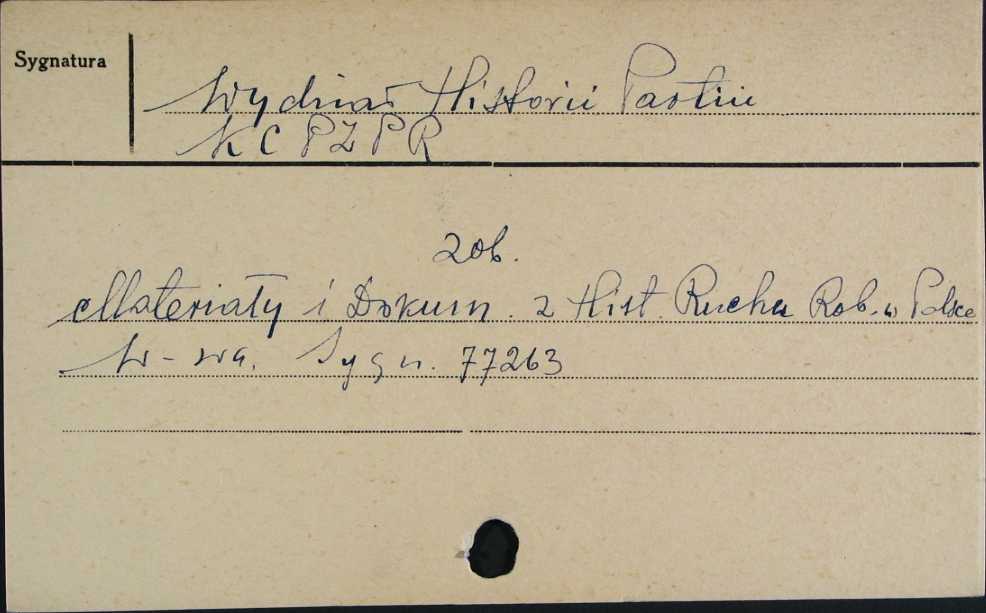 Sygnatura
Wydział Historii Partii
KC PZPR
Zob.
Materiały i Dokum. z Hist. Ruchu Rob. w Polsce
W-wa. Sygn. 77263